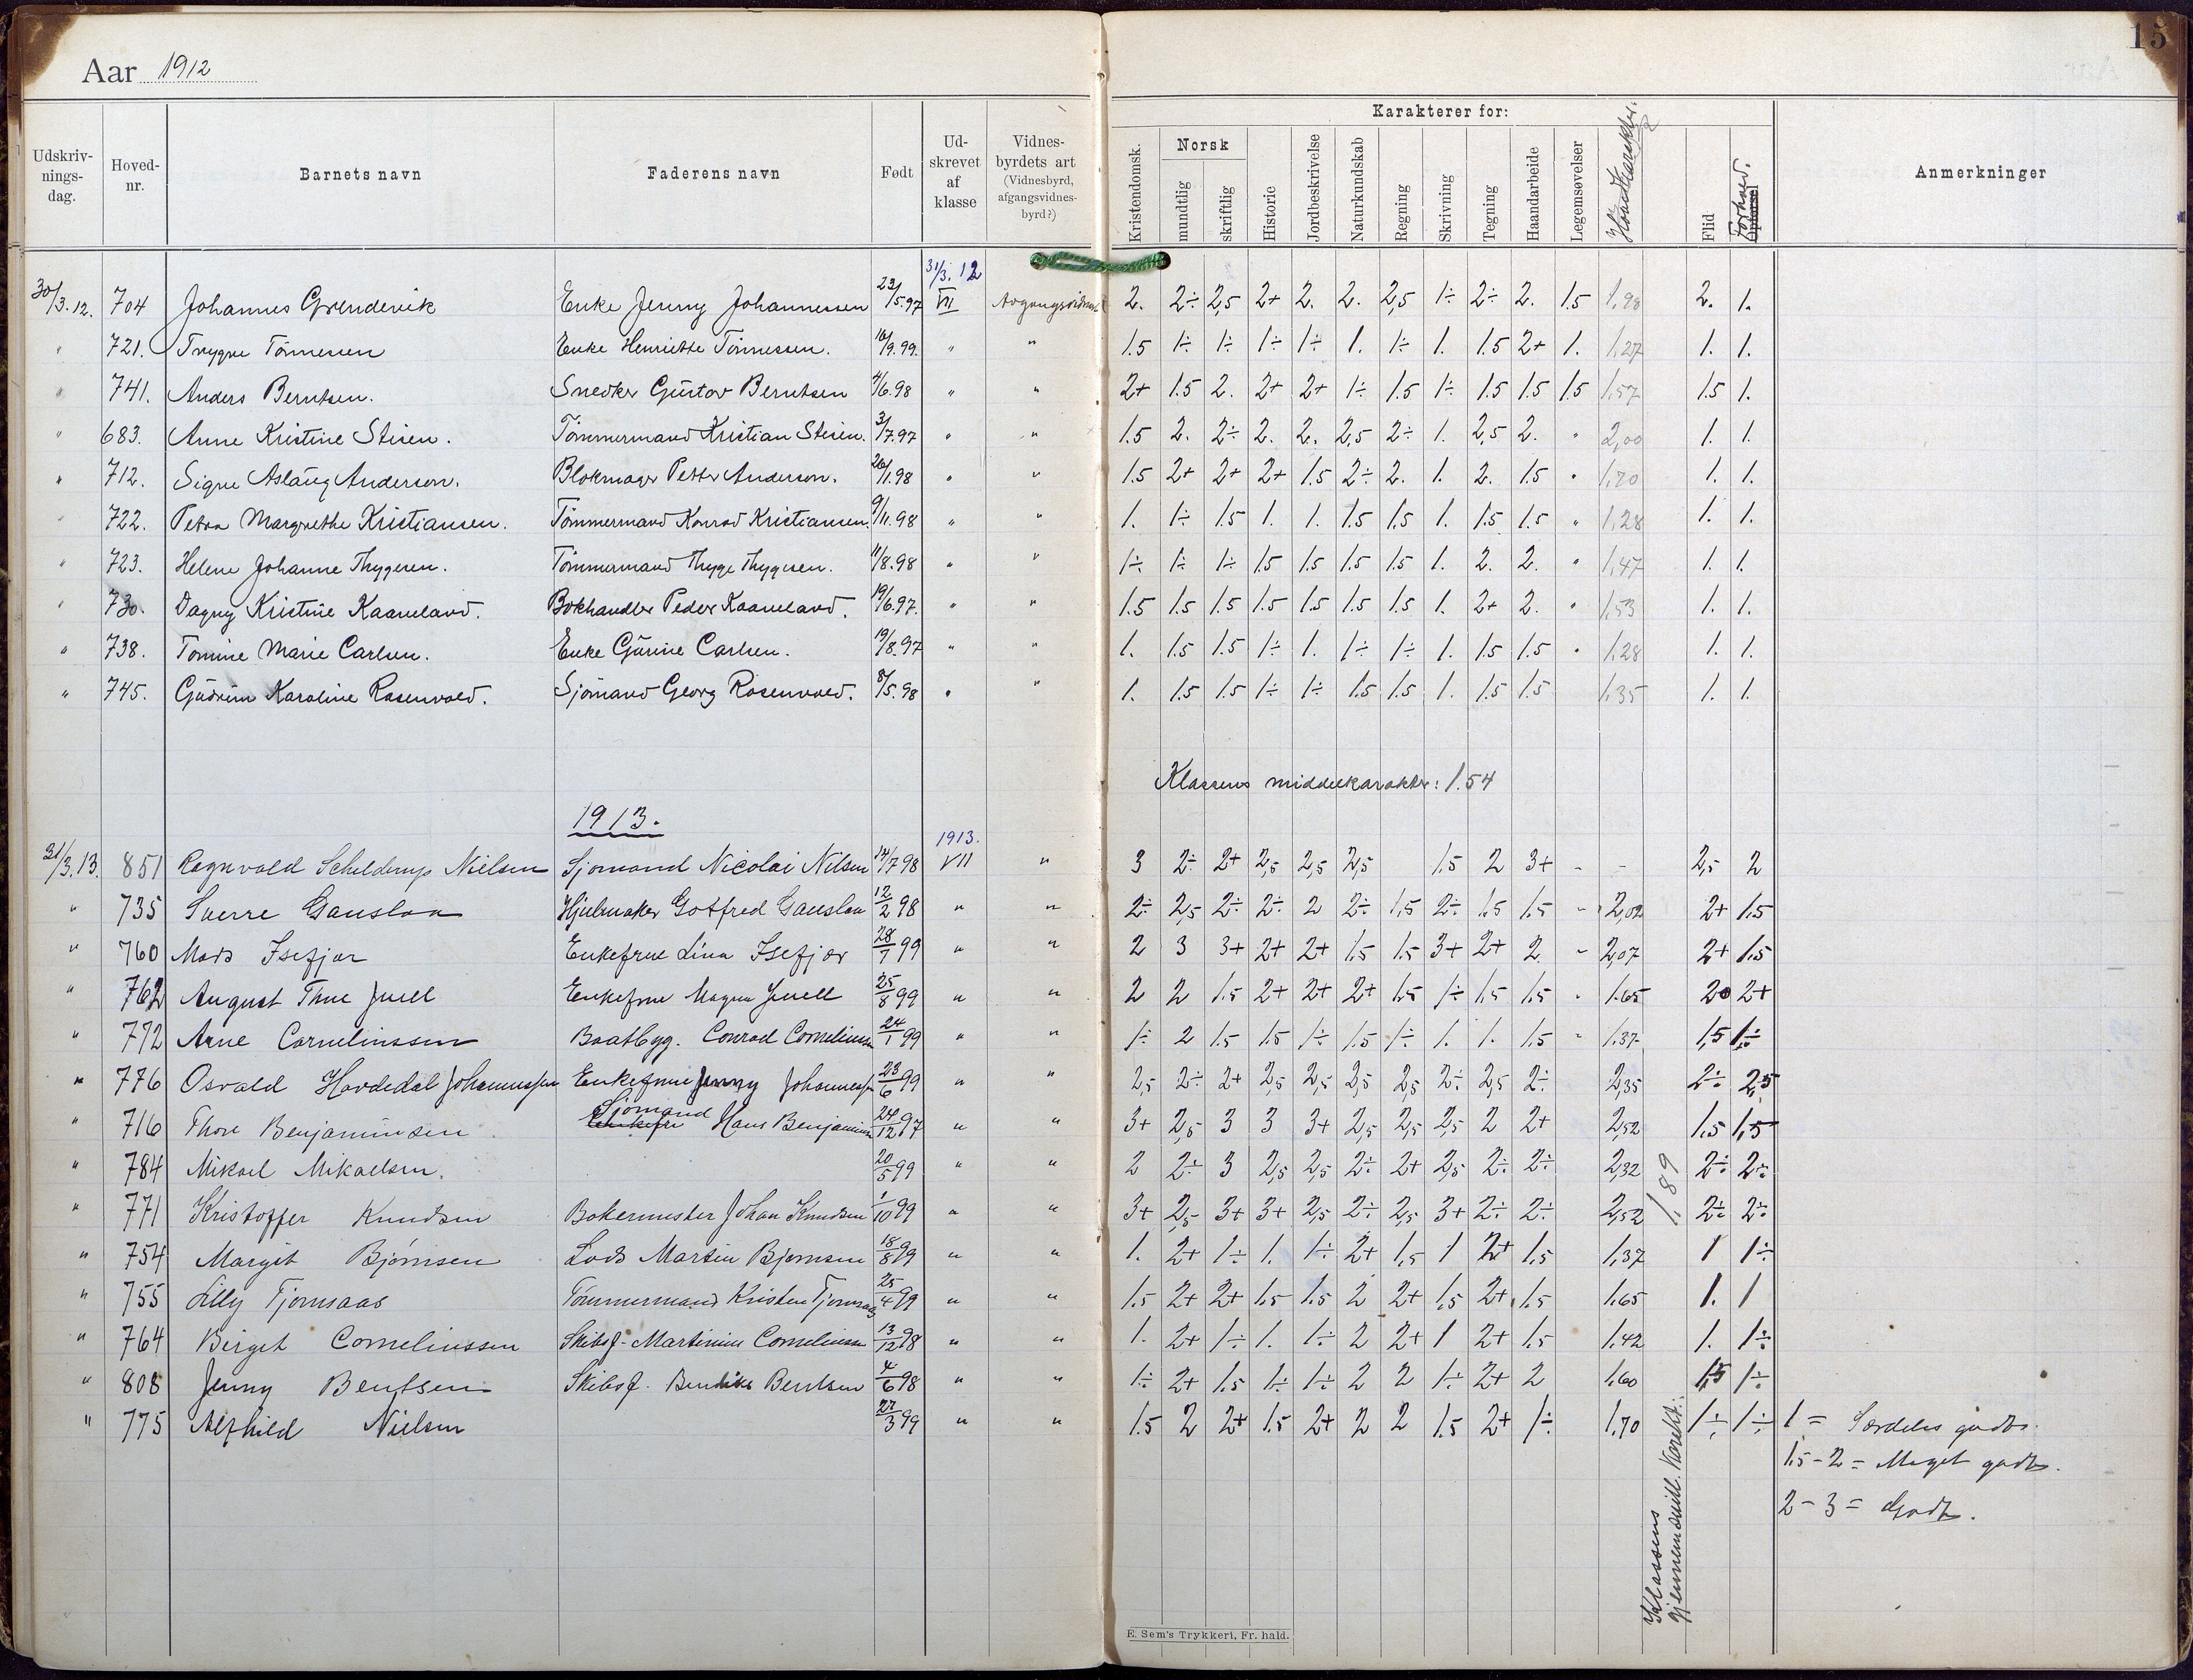 Aar 1912
15
Udskriv-nings-dag. Hoved-nr. Barnets navn Faderens navn Født Ud-skrevet af klasse Vidnes-byrdets art (Vidnesbyrd, afgangsvidnes-byrd?) Karakterer for: Kristendomsk. Norsk mundtlig skriftlig Historie Jordbeskrivelse Naturkundskab Regning Skrivning Tegning Haandarbeide Legemsøvelser Hovedkarakter. Flid Forhold. Opførsel Anmerkninger
31/3. 12
30/3.12. 704 Johannes Grændevik Enke Jenny Johannessen 23/5.97 VII 2. 2÷ 2,5 2+ 2. 2. 2,5 1÷ 2÷ 2. 1.5 1,98 2. 1.
" 721. Trygve Tönnessen Enke Henriette Tönnessen. 16/9.99. " " 1.5 1÷ 1÷ 1÷ 1÷ 1. 1÷ 1. 1.5 2+ 1. 1,27 1. 1.
" 741. Anders Berntsen. Snedker Gustav Berntsen 4/6.98 " " 2+ 1.5 2. 2+ 2+ 1÷ 1.5 1÷ 1.5 1.5 1.5 1,57 1.5 1.
" 683. Anne Kristine Stisen. Tömmermand Kristian Stisen. 3/7.97 " " 1.5 2. 2÷ 2. 2. 2,5 2÷ 1. 2,5 2. " 2,00 1. 1.
" 712. Signe Aslaug Anderson. Blokmager Petter Anderson. 26/1.98 " " 1.5 2+ 2+ 2+ 1.5 2÷ 2. 1. 2. 1.5 " 1,70 1. 1.
" 722. Petra Margrethe Kristiansen. Tömmermand Konrad Kristiansen. 9/11.98 " " 1. 1÷ 1.5 1. 1. 1.5 1.5 1. 1.5 1.5 " 1,28 1. 1.
" 723. Helene Johanne Thygesen. Tömmermand Thyge Thygesen. 11/8.98 " " 1÷ 1÷ 1÷ 1.5 1.5 1.5 1.5 1. 2. 2. " 1,47 1. 1.
" 730. Dagny Kristine Kaaneland. Bokhandler Peder Kaaneland. 19/6.97. " " 1.5 1.5 1.5 1.5 1.5 1.5 1.5 1. 2+ 2. " 1,53 1. 1.
" 738. Tomine Marie Carlsen. Enke Gurine Carlsen. 19/8.97 " " 1. 1.5 1.5 1÷ 1. 1÷ 1÷ 1. 1.5 1.5 " 1,28 1. 1.
" 745. Gudrun Karoline Rosenvold. Sjömand Georg Rosenvold. 8/5.98 " " 1. 1.5 1.5 1÷ 1÷ 1.5 1.5 1. 1.5 1.5 1,35 1. 1.
Klassens middelkarakter: 1.54
1913.
1913.
31/3.13. 851 Ragnvald Schelderup Nielsen Sjømand Nicolai Nilsen 14/7 98 VII " 3 2÷ 2+ 2,5 2,5 2,5 1.5 2 3+ - - 2,5 2
" 735 Sverre Gauslaa Hjulmaker Gotfred Gauslaa 12/2 98 " " 2÷ 2,5 2÷ 2÷ 2 2÷ 1,5 2÷ 1.5 1.5 - 2,02 2+ 1.5
" 760 Mads Isefjær Enkefrue Lina Isefjær 28/1 99 " " 2 3 3+ 2+ 2+ 1.5 1.5 3+ 2+ 2 - 2,07 2+ 1.5
" 762 August Thue Juell Enkefrue Magna Juell 25/8 99 " " 2 2 1.5 2+ 2+ 2+ 1.5 1÷ 1.5 1.5 - 1.65 2 2+
" 772 Arne Corneliussen Baatbyg. Conrad Corneliussen 24/1 99 " " 1÷ 2 1.5 1.5 1÷ 1.5 1÷ 1. 1. 1.5 - 1.37 1,5 1÷
" 776 Osvald Havdedal Johannessen Enkefrue Jenny Johannessen 23/6 99 " " 2,5 2÷ 2+ 2,5 2,5 2,5 2,5 2÷ 2,5 2÷ 2,35 2÷ 2,5
" 716 Thore Benjaminsen Enkefru Sjømand Hans Benjaminsen 24/12 97 " " 3+ 2,5 3 3 3+ 2,5 2,5 2,5 2 2+ 2,52 1.5 1,5
" 784 Mikael Mikaelsen. 20/5 99 " " 2 2÷ 3 2,5 2,5 2÷ 2+ 2,5 2÷ 2÷ 2,32 2÷ 2÷
" 771 Kristoffer Knudsen Bakermester Johan Knudsen 1/10 99 " " 3+ 2,5 3+ 3+ 2,5 2÷ 2,5 3+ 2÷ 2÷ 2,52 2÷ 2÷
" 754 Margit Bjørnsen Lods Martin Bjørnsen 18/8 99 " " 1. 2+ 1÷ 1. 1÷ 2+ 1,5 1 2+ 1.5 1,37 1 1÷
" 755 Lilly Tjomsaas Tömmermand Kristen Tjomsaas 25/4 99 " " 1.5 2+ 2+ 1.5 1.5 2 2+ 1,5 2+ 1.5 1,65 1. 1
" 764 Birgit Corneliussen Skibsf. Martinius Corneliussen 13/12 98 " " 1. 2+ 1÷ 1. 1÷ 2 2+ 1 2+ 1.5 1.42 1. 1÷
" 808 Jenny Bentsen Skibsf. Bendiks Bentsen 4/6 98 " " 1÷ 2+ 1.5 1÷ 1÷ 2 2 1÷ 2+ 2 1.60 1,5 1÷
" 775 Alfhild Nielsen 27/3 99 " " 1.5 2 2+ 1.5 2+ 2 2 1.5 2+ 1÷ 1,70 1÷ 1÷
Klassens gjennemsnitl. karakt.: 1.89
1 = Særdeles godt.
1.5-2 = Meget godt.
2-3 = Godt.
E. Sem's Trykkeri, Fr. hald.